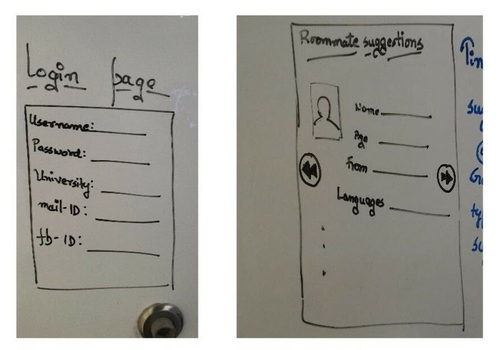 Login page
Username:
Password:
University:
mail-ID:
fb-ID:
Roommate suggestions
Name
Age
From
Languages